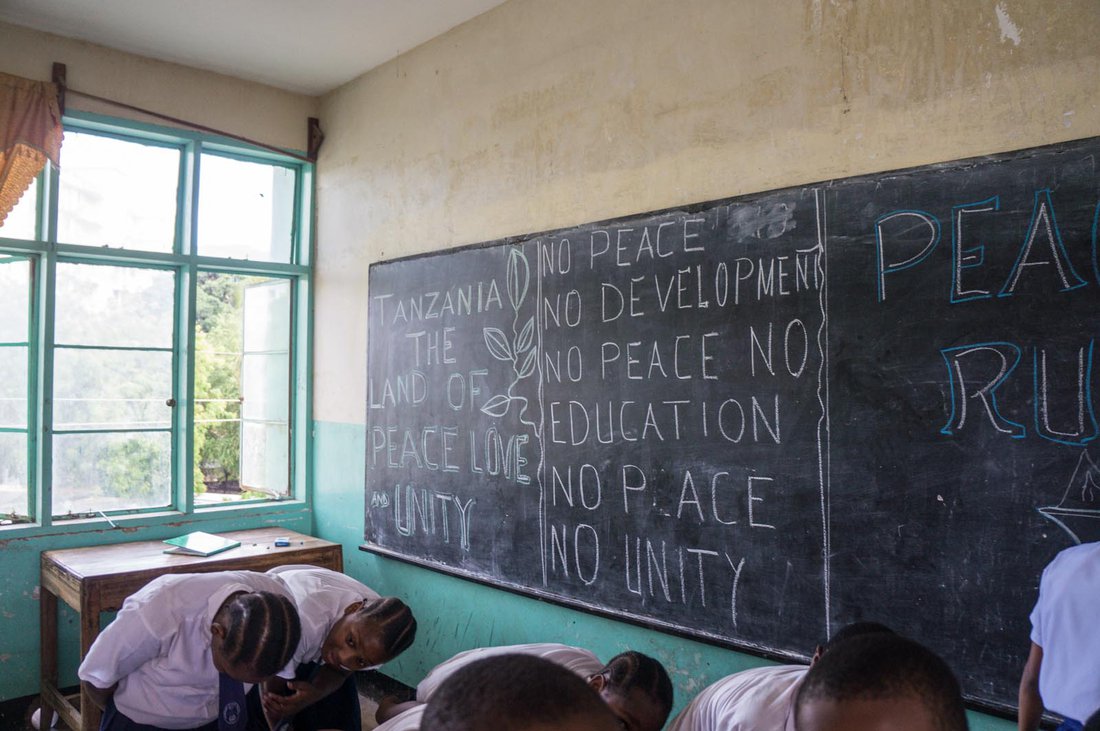 TANZANIA
THE
LAND OF
PEACE LOVE
AND UNITY
NO PEACE
NO DEVELOPMENT
NO PEACE NO
EDUCATION
NO PEACE
NO UNITY